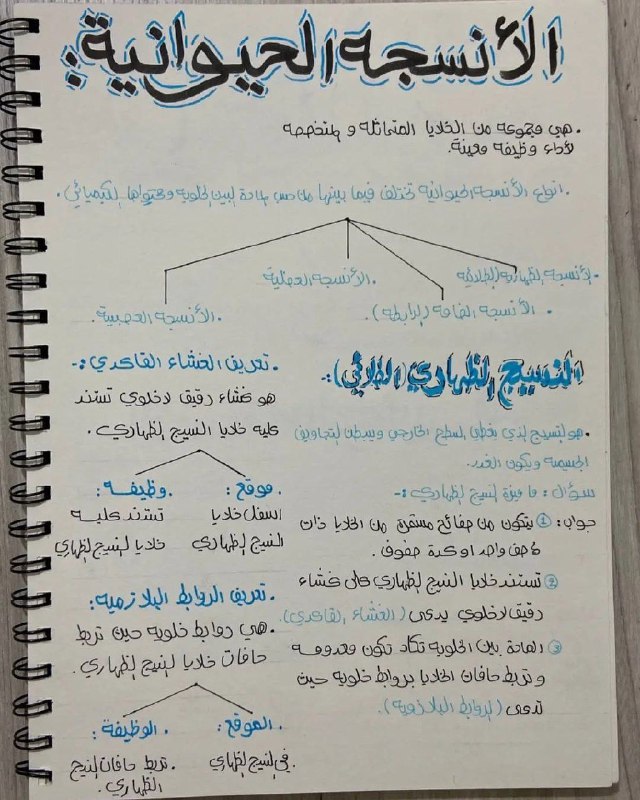 الأنسجه الحيوانية:
. هي مجموعه من الخلايا المتماثله و المتخصصه
لأداء وظيفه معينة.
. انواع الأنسجه الحيوانيه تختلف فيما بينها من حيث المادة البين الخلويه ومحتواها الكيميائي.
. الأنسجه الظهاريه (الطلائيه
. الأنسجه العضلية
. الأنسجه الضامه (الرابطه).
. الأنسجه العصبية.
النسيج الظهاري (الطلائي):-
. هو النسيج الذي يغطي السطح الخارجي ويبطن التجاويف
الجسميه ويكون الغدد.
سؤال: ما ميزة النسيج الظهاري:-
جواب: ① يتكون من صفائح مستمرة من الخلايا ذات
صف واحد او عدة صفوف.
② تستند خلايا النسيج الظهاري على غشاء
رقيق لاخلوي يدعى (الغشاء القاعدي).
③ المادة بين الخلويه تكاد تكون معدومه
و تربط حافات الخلايا بروابط خلويه حيث
تدعى (الروابط البلازميه)
. تعريف الغشاء القاعدي:-
هو غشاء رقيق لاخلوي تستند
عليه خلايا النسيج الظهاري.
. موقع:
اسفل خلايا
النسيج الظهاري
. وظيفه:
تستند عليه
خلايا النسيج الظهاري
. تعريف الروابط البلازميه:
. هي روابط خلويه حين تربط
حافات خلايا النسيج الظهاري.
. الموقع:
في النسيج الظهاري
. الوظيفة:
. تربط حافات النسيج
الظهاري.